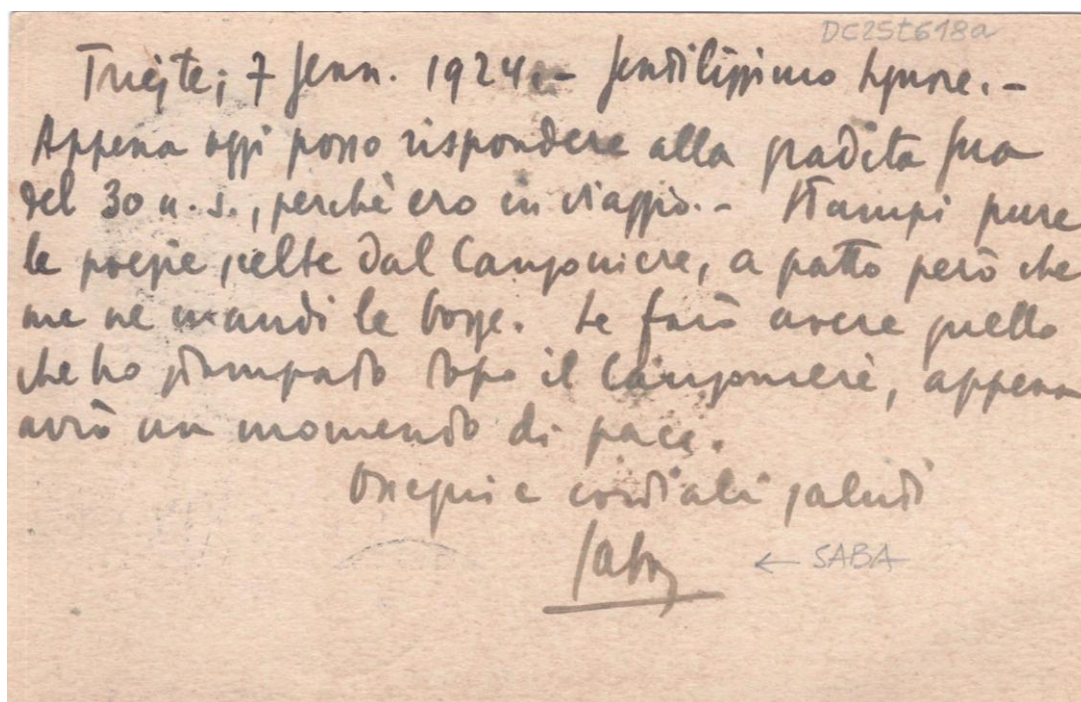 DC25t618a
Trieste; 7 Jenn. 1924.- Gentilissimo Signore.-
Appena oggi posso rispondere alla gradita Sua
del 30 u. s., perchè ero in viaggio.- Stampi pure
le poesie scelte dal Canzoniere, a patto però che
me ne mandi le bozze. Le farò avere quello
che ho stampato dopo il Canzoniere, appena
avrò un momento di pace.
Ossequi e cordiali saluti
Saba
← SABA